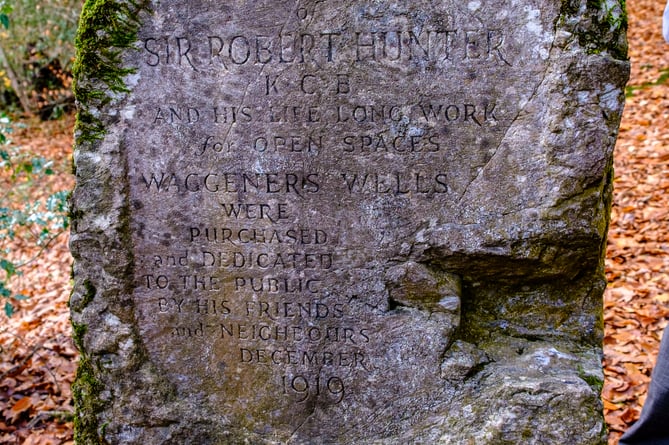 of
SIR ROBERT HUNTER
K C B
AND HIS LIFE LONG WORK
for OPEN SPACES
WAGGENERS WELLS
WERE
PURCHASED
and DEDICATED
TO THE PUBLIC
BY HIS FRIENDS
and NEIGHBOURS
DECEMBER
1919